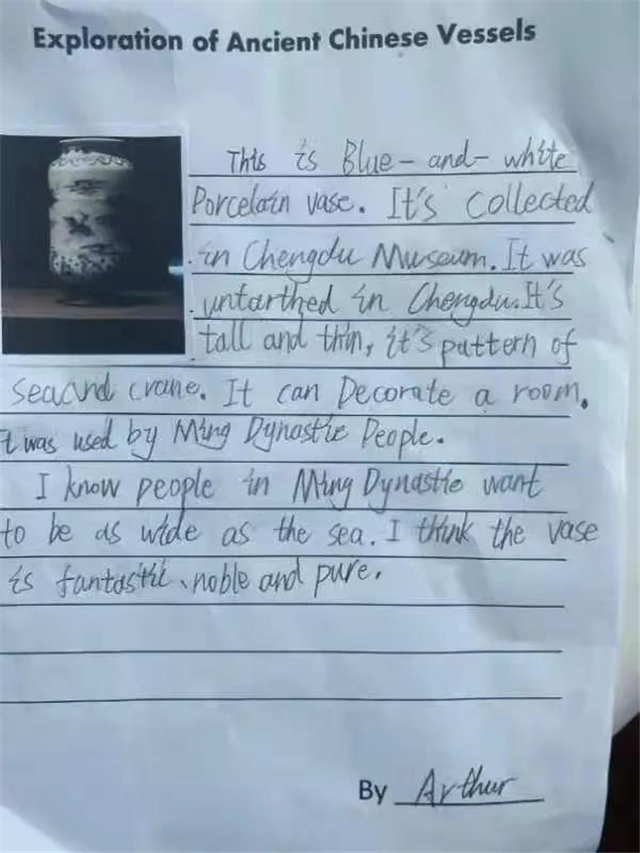 Exploration of Ancient Chinese Vessels
This is Blue-and-white
Porcelain vase. It's collected
in Chengdu Museum. It was
untarthed in Chengdu. It's
tall and thin, it's pattern of
sea and crane. It can Decorate a room.
it was used by Ming Dynastie People.
I know people in Ming Dynastie want
to be as wide as the sea. I think the vase
is fantastic、noble and pure.
By Arthur